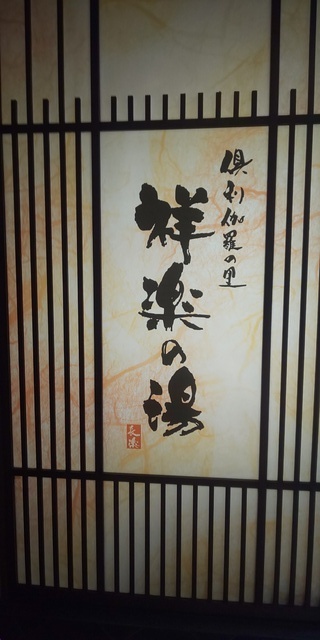 倶利伽羅の里
祥楽の湯